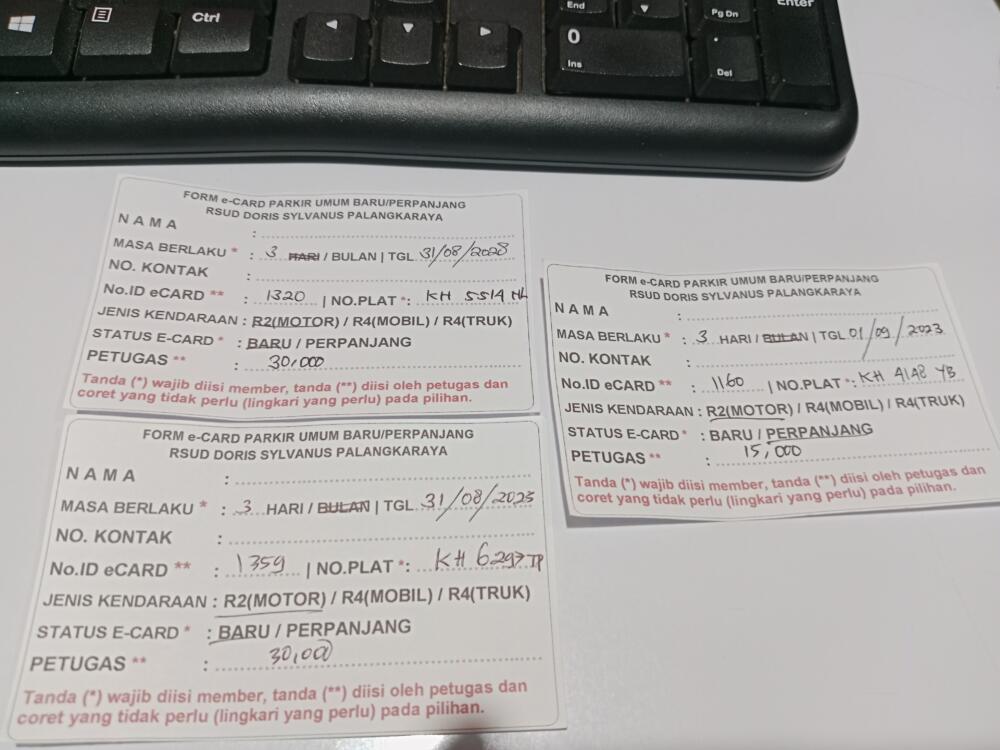 Ctrl
End
Pg Dn
Enter
0
Ins
.
Del
FORM e-CARD PARKIR UMUM BARU/PERPANJANG
RSUD DORIS SYLVANUS PALANGKARAYA
NAMA :
MASA BERLAKU * : 3 HARI / BULAN | TGL 31/08/2023
NO. KONTAK :
No.ID eCARD ** : 1320 | NO.PLAT *: KH 5514 HL
JENIS KENDARAAN : R2(MOTOR) / R4(MOBIL) / R4(TRUK)
STATUS E-CARD * : BARU / PERPANJANG
PETUGAS ** : 30,000
Tanda (*) wajib diisi member, tanda (**) diisi oleh petugas dan
coret yang tidak perlu (lingkari yang perlu) pada pilihan.
FORM e-CARD PARKIR UMUM BARU/PERPANJANG
RSUD DORIS SYLVANUS PALANGKARAYA
NAMA :
MASA BERLAKU * : 3 HARI / BULAN | TGL 31/08/2023
NO. KONTAK :
No.ID eCARD ** : 1359 | NO.PLAT *: KH 6297 TP
JENIS KENDARAAN : R2(MOTOR) / R4(MOBIL) / R4(TRUK)
STATUS E-CARD * : BARU / PERPANJANG
PETUGAS ** : 30,000
Tanda (*) wajib diisi member, tanda (**) diisi oleh petugas dan
coret yang tidak perlu (lingkari yang perlu) pada pilihan.
FORM e-CARD PARKIR UMUM BARU/PERPANJANG
RSUD DORIS SYLVANUS PALANGKARAYA
NAMA :
MASA BERLAKU * : 3 HARI / BULAN | TGL 01/09/2023
NO. KONTAK :
No.ID eCARD ** : 1160 | NO.PLAT *: KH 4148 YB
JENIS KENDARAAN : R2(MOTOR) / R4(MOBIL) / R4(TRUK)
STATUS E-CARD * : BARU / PERPANJANG
PETUGAS ** : 15,000
Tanda (*) wajib diisi member, tanda (**) diisi oleh petugas dan
coret yang tidak perlu (lingkari yang perlu) pada pilihan.